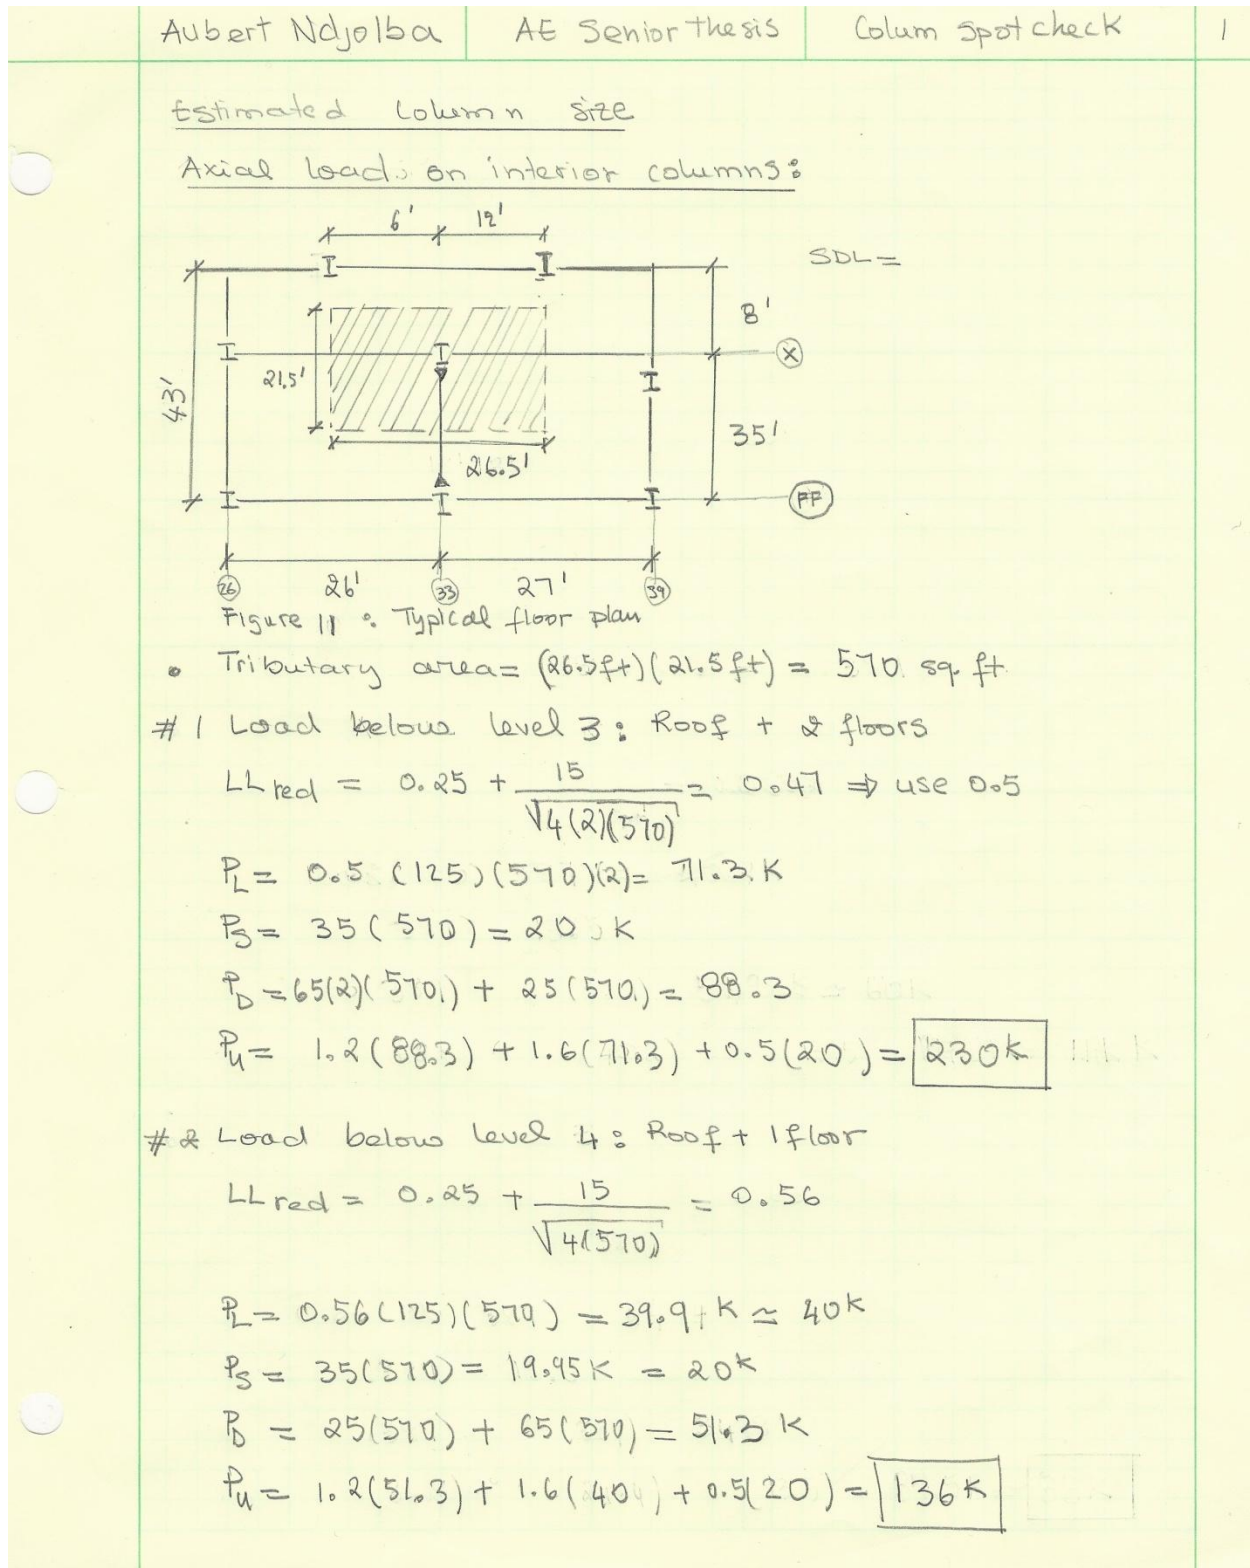 Aubert Ndjolba AE Senior Thesis Colum Spot check 1
Estimated Column size
Axial load on interior columns:
6' 12'
SDL =
8'
X
21.5'
43'
35'
26.5'
FF
26' 27'
26 33 39
Figure 11 : Typical floor plan
• Tributary area = (26.5ft)(21.5ft) = 570 sq. ft
#1 Load below level 3: Roof + 2 floors
LL red = 0.25 + 15/√4(2)(570) = 0.47 ⇒ use 0.5
PL = 0.5 (125)(570)(2) = 71.3 K
PS = 35(570) = 20 K
PD = 65(2)(570) + 25(570) = 88.3
Pu = 1.2(88.3) + 1.6(71.3) + 0.5(20) = 230k
#2 Load below level 4: Roof + 1 floor
LL red = 0.25 + 15/√4(570) = 0.56
PL = 0.56(125)(570) = 39.9 K ≃ 40K
PS = 35(570) = 19.95K = 20K
PD = 25(570) + 65(570) = 51.3 K
Pu = 1.2(51.3) + 1.6(40) + 0.5(20) = 136K